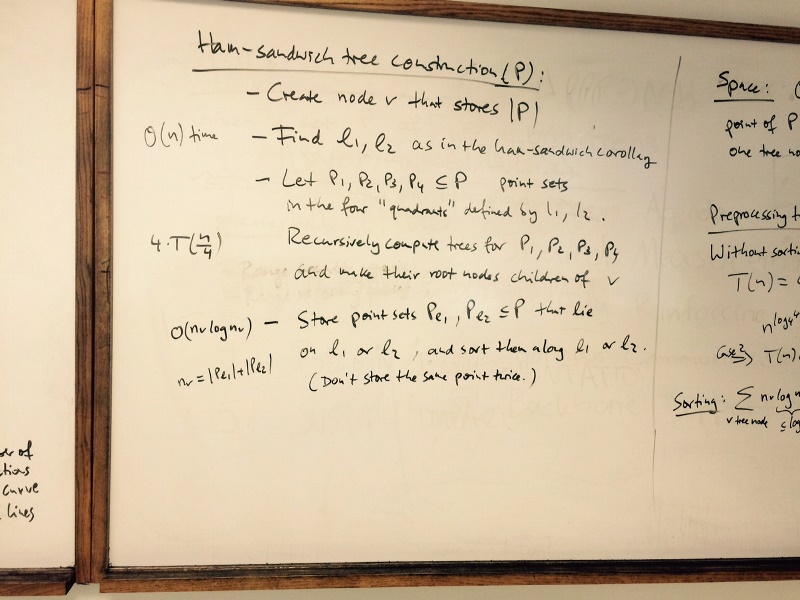 Ham-sandwich tree construction(P):
- Create node v that stores |P|
O(n) time - Find l1, l2 as in the ham-sandwich corollary
- Let P1, P2, P3, P4 ⊆ P point sets
in the four "quadrants" defined by l1, l2.
4·T(n/4) Recursively compute trees for P1, P2, P3, P4
and make their root nodes children of v
O(nv log nv) - Store point sets Pℓ1, Pℓ2 ⊆ P that lie
nv = |Pℓ1|+|Pℓ2| on l1 or l2, and sort them along l1 or l2.
(Don't store the same point twice.)
Space: (
point of P
one tree no
Preprocessing t
Without sorti
T(n) =
n^log4 4
Case 2 ⇒ T(n)
Sorting: Σ nv log n
v tree node ≤ log
er of
tions
curve
lines